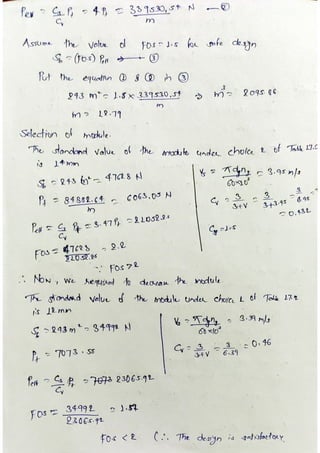 Peff = Cs/Cv Pt = 4Pt = 339530,54/m N — ②
Assume the value of FOS = 1.5 for safe design
Sb = (FOS) Peff — ③
Put the equation ① & ② in ③
243 m² = 1.5 × 339530.54/m ⇒ m³ = 2095.86
m = 12.79
Selection of module.
The standard value of the module under choice 2 of Table 17.2
is 14mm
Sb = 243 m² = 47628 N
Pt = 84882.64/m = 6063.05 N
Peff = Cs/Cv Pt = 3.47 Pt = 21052.25
FOS = 47628/21052.25 = 2.2
∵ FOS > 2
V = π dp np/60×10³ = 3.95 m/s
Cv = 3/3+V = 3/3+3.95 = 3/6.95 = 0.432
Cs = 1.5
∴ Now, we required to decrease the module
The standard value of the module under choice 1 of Table 17.2
is 12 mm
Sb = 243 m² = 34992 N
Pt = 7073.55
Peff = Cs/Cv Pt = 23065.92
FOS = 34992/23065.92 = 1.52
FOS < 2 (∴ The design is satisfactory
V = π dp np/60×10³ = 3.39 m/s
Cv = 3/3+V = 3/6.39 = 0.46